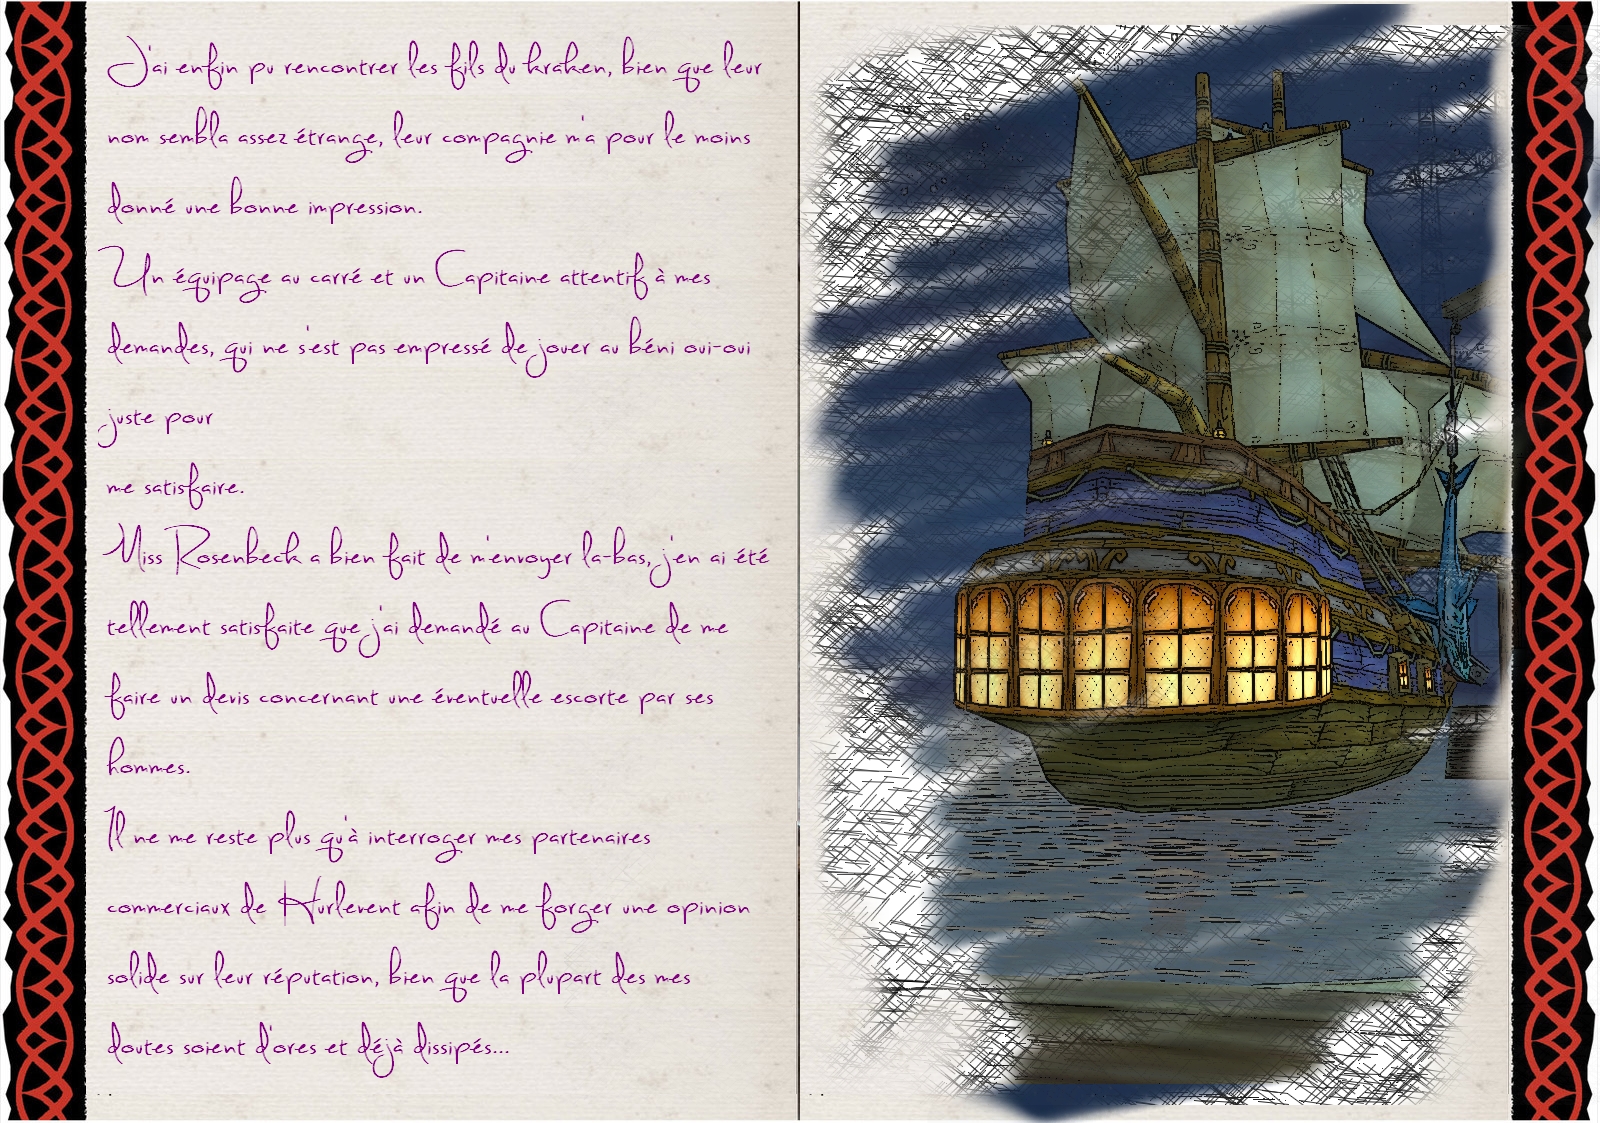 J'ai enfin pu rencontrer les fils du kraken, bien que leur
nom sembla assez étrange, leur compagnie m'a pour le moins
donné une bonne impression.
Un équipage au carré et un Capitaine attentif à mes
demandes, qui ne s'est pas empressé de jouer au béni oui-oui
juste pour
me satisfaire.
Miss Rosenbeck a bien fait de m'envoyer la-bas, j'en ai été
tellement satisfaite que j'ai demandé au Capitaine de me
faire un devis concernant une éventuelle escorte par ses
hommes.
Il ne me reste plus qu'à interroger mes partenaires
commerciaux de Hurlevent afin de me forger une opinion
solide sur leur réputation, bien que la plupart des mes
doutes soient d'ores et déjà dissipés...